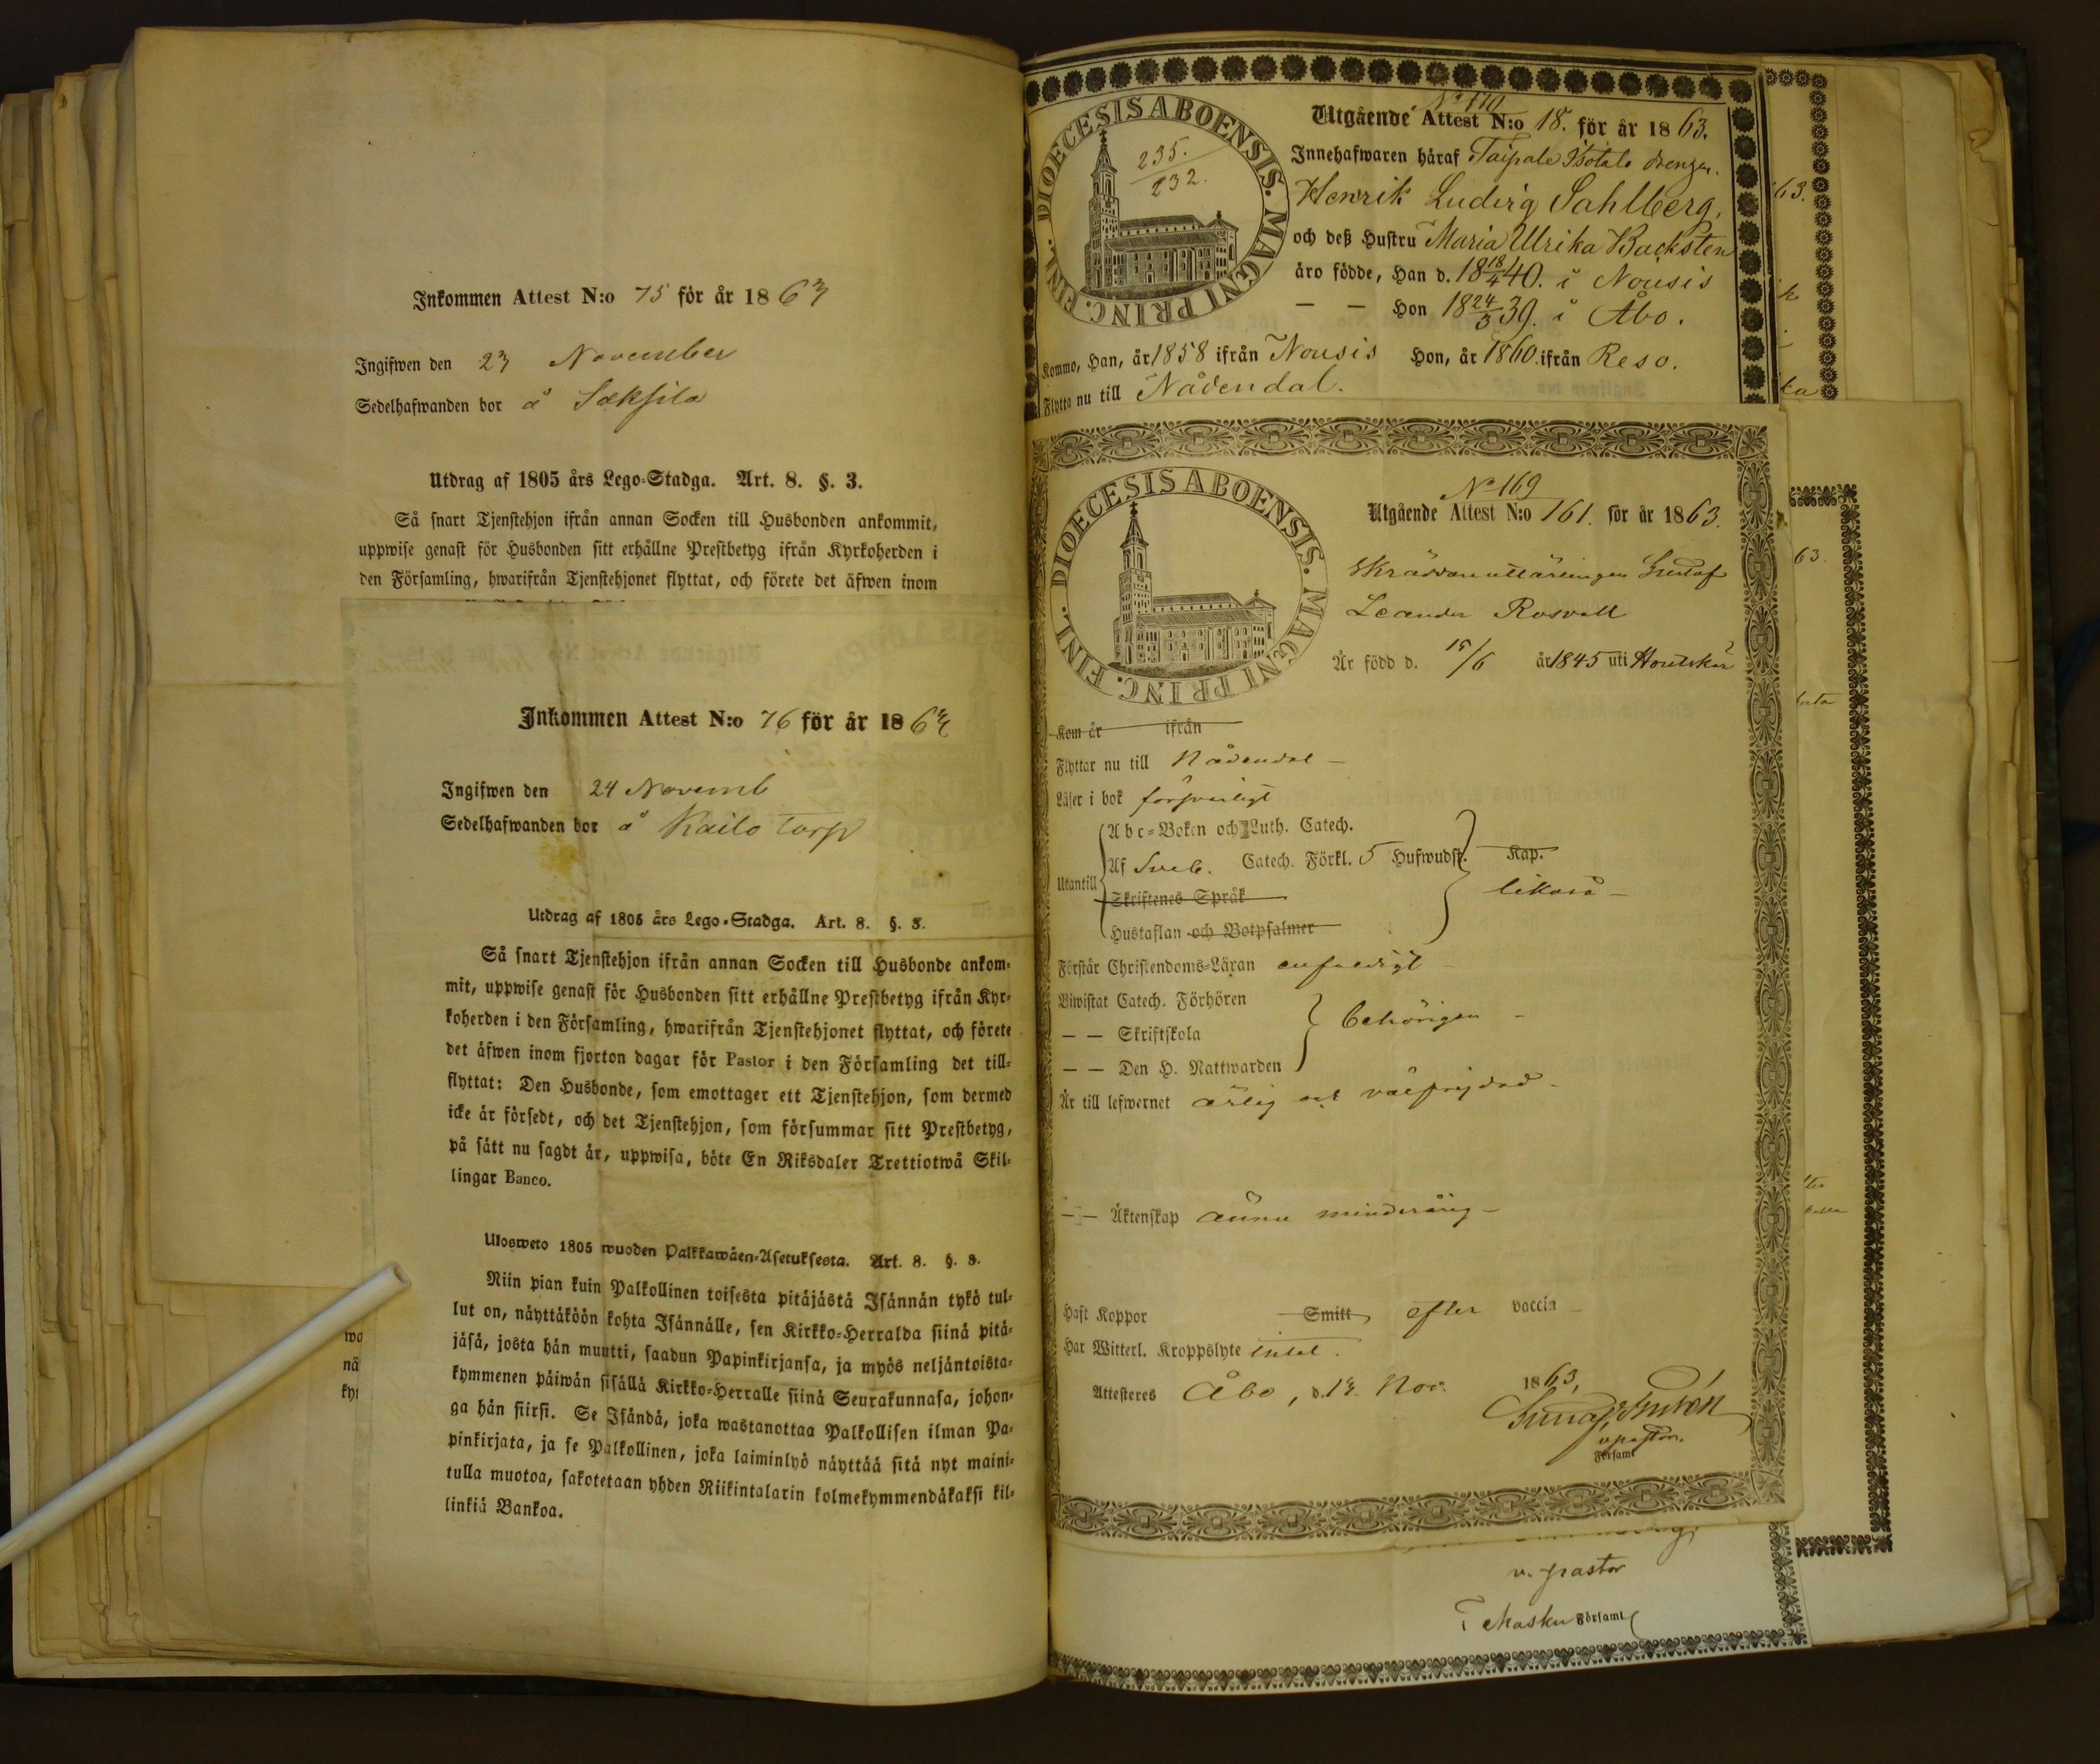 Inkommen Attest N:o 75 för år 1863
Ingifwen den 23 November
Sedelhafwanden bor å Saksila
Utdrag af 1805 års Lego-Stadga. Art. 8. §. 3.
Så snart Tjenstehjon ifrån annan Socken till Husbonden ankommit,
uppwise genast för Husbonden sitt erhållne Prestbetyg ifrån Kyrkoherden i
den Församling, hwarifrån Tjenstehjonet flyttat, och förete det äfwen inom
Inkommen Attest N:o 76 för år 1863
Ingifwen den 24 Novemb
Sedelhafwanden bor å Kailo torp
Utdrag af 1805 års Lego-Stadga. Art. 8. §. 3.
Så snart Tjenstehjon ifrån annan Socken till Husbonde ankom-
mit, uppwise genast för Husbonden sitt erhållne Prestbetyg ifrån Kyr-
koherden i den Församling, hwarifrån Tjenstehjonet flyttat, och förete
det äfwen inom fjorton dagar för Pastor i den Församling det till-
flyttat: Den Husbonde, som emottager ett Tjenstehjon, som dermed
icke är försedt, och det Tjenstehjon, som försummar sitt Prestbetyg,
på sätt nu sagdt är, uppwisa, böte En Riksdaler Trettiotwå Skil-
lingar Banco.
Ulosweto 1805 wuoden Palkkawäen-Asetuksesta. Art. 8. §. 3.
Niin pian kuin Palkollinen toisesta pitäjästä Isännän tykö tul-
lut on, näyttäköön kohta Isännälle, sen Kirkko-Herralda siinä pitä-
jäsä, josta hän muutti, saadun Papinkirjansa, ja myös neljäntoista-
kymmenen päiwän sisällä Kirkko-Herralle siinä Seurakunnasa, johon-
ga hän siirsi. Se Isändä, joka wastanottaa Palkollisen ilman Pa-
pinkirjata, ja se Palkollinen, joka laiminlyö näyttää sitä nyt maini-
tulla muotoa, sakotetaan yhden Riikintalarin kolmekymmendäkaksi kil-
linkiä Bankoa.
wo
nä
kyn
DIOECESIS ABOENSIS. MAGNI PRINC. FINL.
235.
232.
N:o 170
Utgående Attest N:o 18. för år 1863.
Innehafwaren häraf Taipale Isotalo drengen
Henrik Ludvig Sahlberg,
och deß Hustru Maria Ulrika Backsten
äro födde, Han d. 18 18/4 40. i Nousis
— — Hon 18 24/3 39. i Åbo.
Kommo, Han, år 1858 ifrån Nousis Hon, år 1860 ifrån Reso.
Flytta nu till Nådendal.
DIOECESIS ABOENSIS. MAGNI PRINC. FINL.
N:o 169
Utgående Attest N:o 161. för år 1863.
Skräddarelärlingen Gustaf
Leander Rosvall
Är född d. 15/6 år 1845 uti Houtskär
Kom år ifrån
Flyttar nu till Nådendal —
Läser i bok försvarligt
Abc-Boken och Luth. Catech.
Utantill Af Sveb. Catech. Förkl. 5 Hufwudst. Kap.
likaså —
Skriftenes Språk
Hustaflan och Botpsalmer
Förstår Christendoms-Läran enfaldigt —
Biwistat Catech. Förhören
— — Skriftskola behörigen —
— — Den H. Nattwarden
Är till lefwernet ärlig och välfrejdad —
— — Äktenskap ännu minderårig —
Haft Koppor Smitt efter vaccin —
Har Witterl. Kroppslyte intet.
Attesteres Åbo, d. 13. Nov. 1863,
v. pastor.
Församl
v. pastor
i Masku Församl
63.
63.